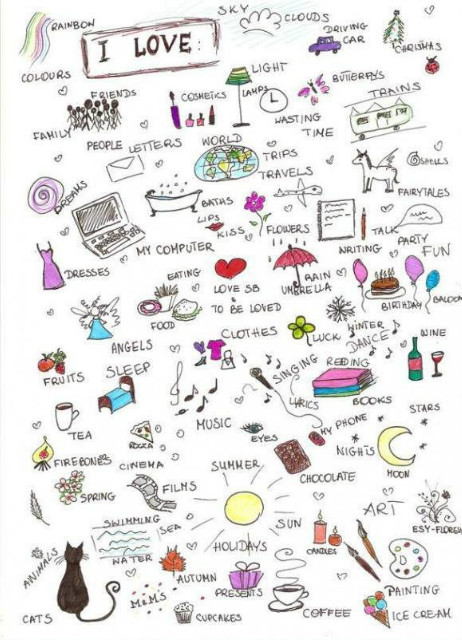 SKY
CLOUDS
RAINBOW
I LOVE:
DRIVING
CAR
CHRISTMAS
COLOURS
LIGHT
LAMPS
BUTTERFLYS
FRIENDS
COSMETICS
TRAINS
WASTING
TIME
FAMILY
PEOPLE
LETTERS
WORLD
TRIPS
TRAVELS
SPELLS
DREAMS
FAIRYTALES
BATHS
LIPS
KISS
FLOWERS
WRITING
TALK
PARTY
FUN
MY COMPUTER
DRESSES
EATING
LOVE SB
&
TO BE LOVED
RAIN
UMBRELLA
BIRTHDAY
BALOON
FOOD
ANGELS
CLOTHES
LUCK
WINTER
DANCE
WINE
FRUITS
SLEEP
SINGING
READING
LYRICS
BOOKS
STARS
TEA
PIZZA
MUSIC
EYES
MY PHONE
NIGHTS
MOON
FIREBONES
CINEMA
SUMMER
CHOCOLATE
SPRING
FILMS
ART
ESY-FLORES
SWIMMING
SEA
SUN
WATER
HOLIDAYS
CANDLES
ANIMALS
AUTUMN
PRESENTS
PAINTING
CATS
M&M'S
CUPCAKES
COFFEE
ICE CREAM